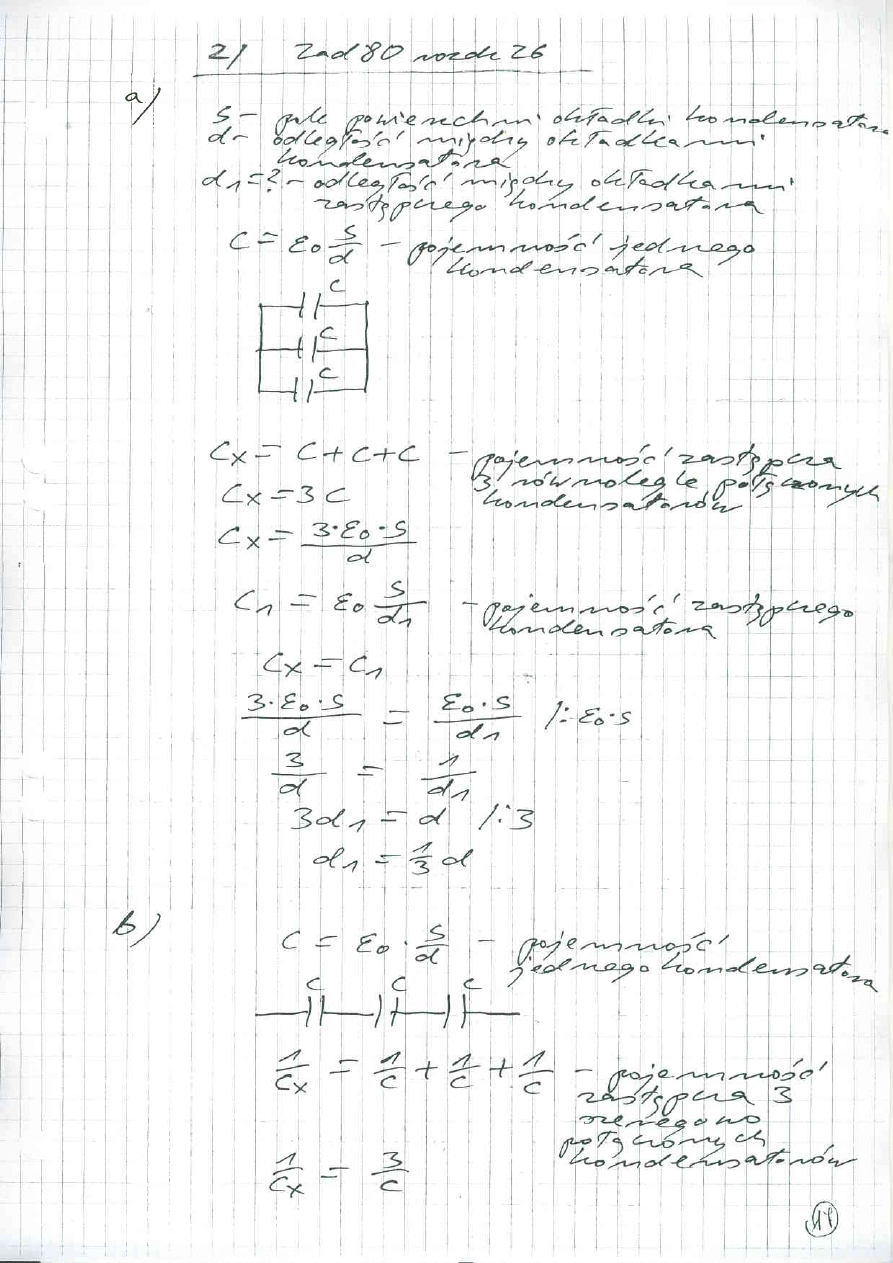 2) Zad 80 rozdz 26
a)
S – pole powierzchni okładki kondensatora
d – odległość między okładkami
kondensatora
d1 = ? – odległość między okładkami
zastępczego kondensatora
C = ε0 S/d – pojemność jednego
kondensatora
C
C
C
Cx = C + C + C – pojemność zastępcza
3 równolegle połączonych
Cx = 3C kondensatorów
Cx = 3·ε0·S/d
C1 = ε0 S/d1 – pojemność zastępczego
kondensatora
Cx = C1
3·ε0·S/d = ε0·S/d1 /:ε0·S
3/d = 1/d1
3d1 = d /:3
d1 = 1/3 d
b)
C = ε0 · S/d – pojemność
jednego kondensatora
C C C
1/Cx = 1/C + 1/C + 1/C – pojemność
zastępcza 3
szeregowo
połączonych
1/Cx = 3/C kondensatorów